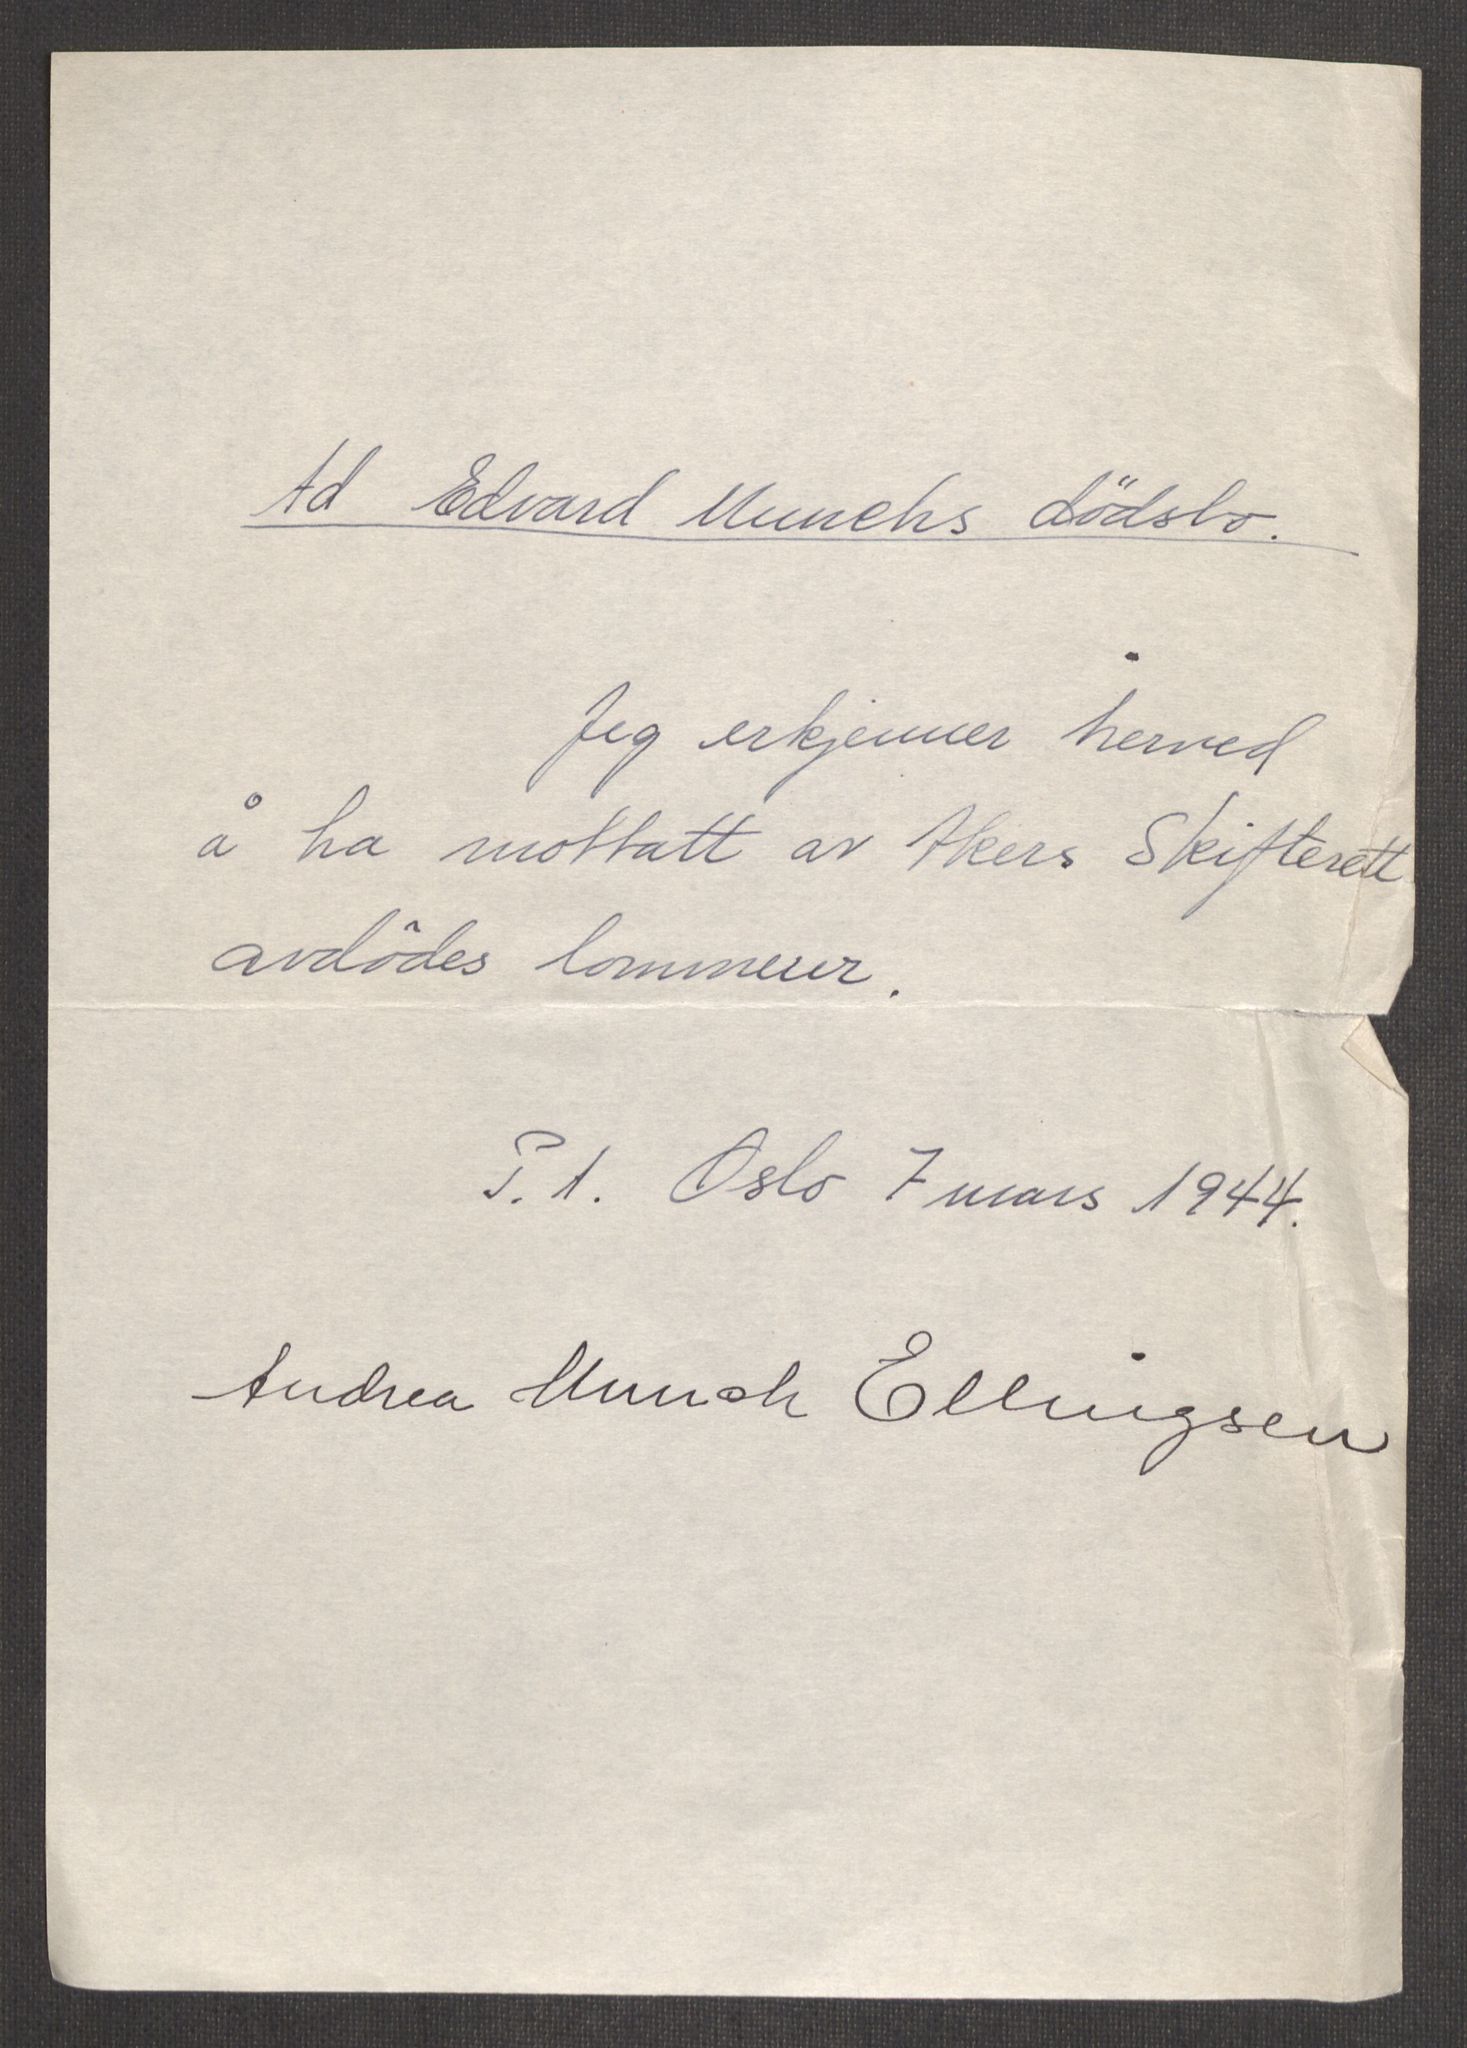 Ad Edvard Munchs dödsbo.
Jeg erkjenner herved
å ha mottatt av Akers Skifterett
avdödes lommeur.
P.t. Oslo 7 mars 1944.
Andrea Munch Ellingsen